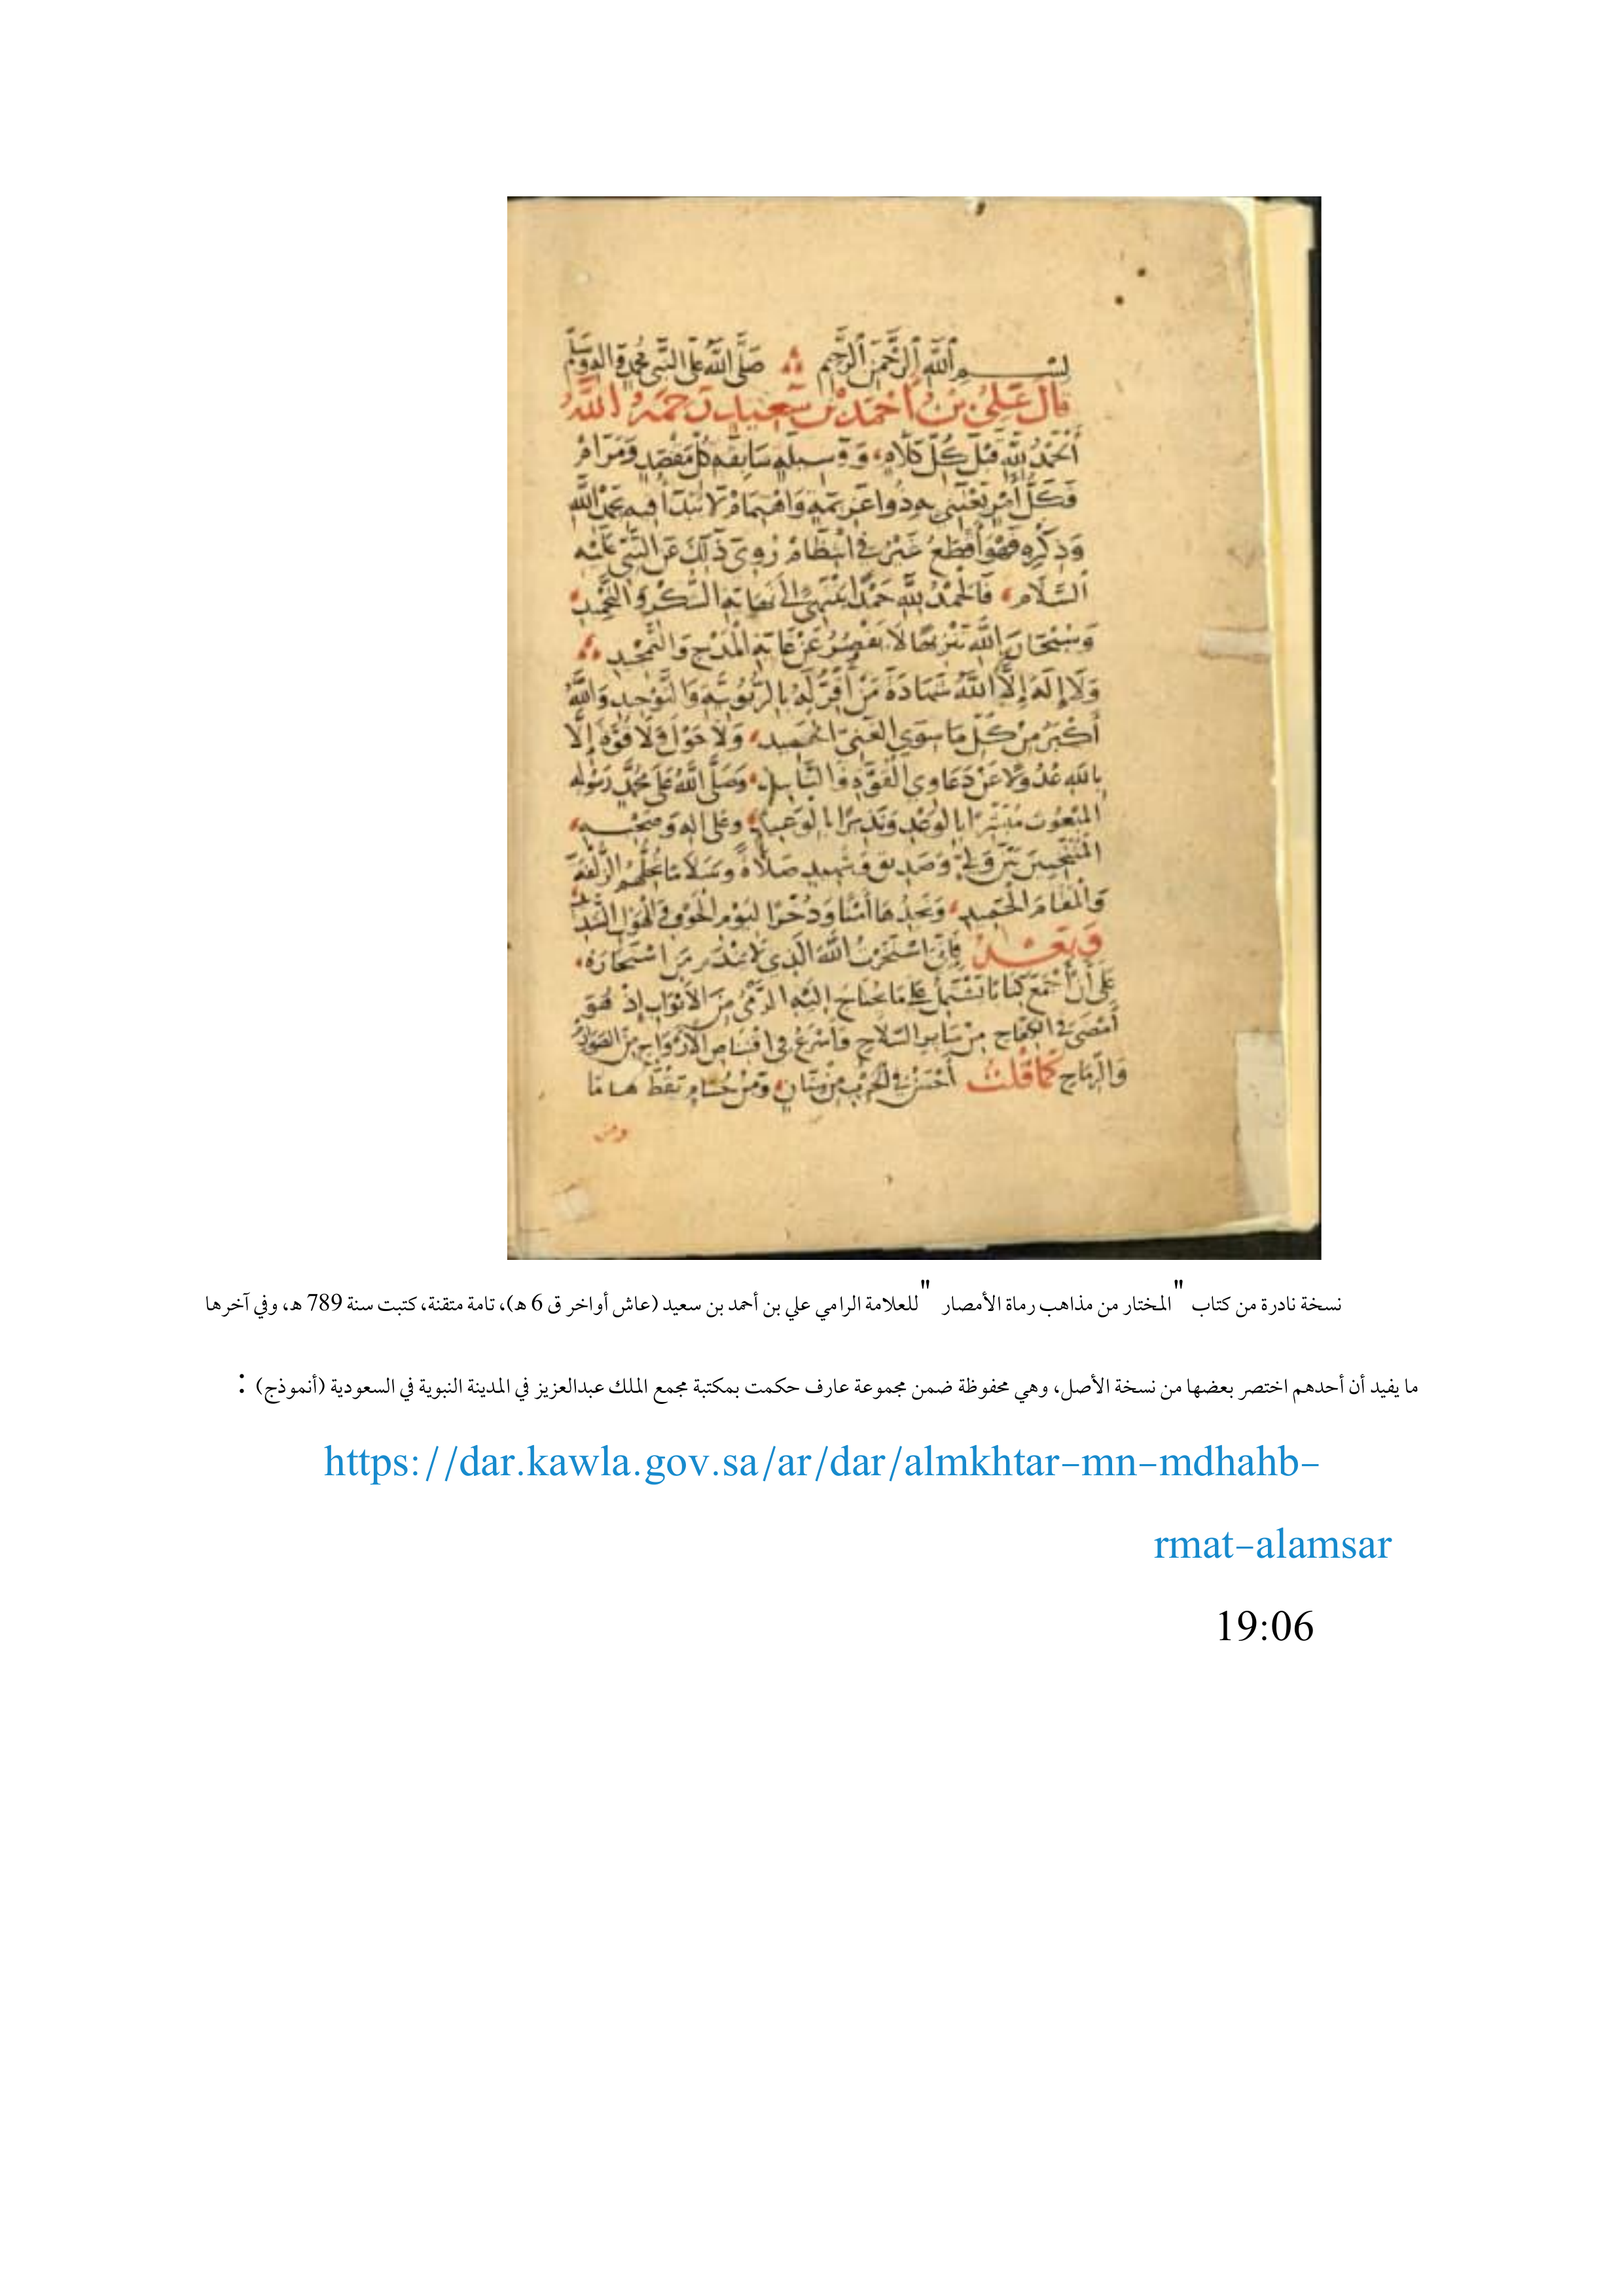 بسم الله الرحمن الرحيم صلى الله على النبي محمد واله وسلم
قال علي بن أحمد بن سعيد رحمه الله
ألحمد لله قبل كل كلام، ووسيلة سابقة كل مقصد ومرام
فكل أمر يعتني به ذوا عزيمة واهتمام لا يبدأ فيه بحمد الله
وذكره فهو أقطع غير في انتظام روي ذلك عن النبي عليه
السلام، فالحمد لله حمدا ينتهي إلى نهاية الشكر والتحميد
وسبحان الله تنزيها لا يقصر عن غاية المدح والتمجيد
ولا إله إلا الله شهادة من أقر له بالربوبية والتوحيد والله
أكبر من كل ما سوى الغني الحميد، ولا حول ولا قوة إلا
بالله عدولا عن دعاوي القوة و وصلى الله على محمد رسوله
المبعوث مبشرا بالوعد ونذيرا بالوعيد وعلى اله وصحبه
المنتجبين بين ولي وصديق وشهيد صلاة وسلاما الزلفة
والمقام الحميد، ونجدها أمنا وذخرا ليوم الخوف والهول الشديد
وبعد فإني استخرت الله الذي من استخاره،
على أن أجمع كتابا تشتمل على ما يحتاج إليه الرمي من الأبواب إذ هو
أمضى في الكفاح من ساير السلاح وأسرع في اقتناص الأرواح من الصوارم
والرماح كما قلت أحسن في الحرب من سنان ومن حسام يقط هاما
ومن
نسخة نادرة من كتاب "المختار من مذاهب رماة الأمصار "للعلامة الرامي علي بن أحمد بن سعيد (عاش أواخر ق 6 هـ)، تامة متقنة، كتبت سنة 789 هـ، وفي آخرها
ما يفيد أن أحدهم اختصر بعضها من نسخة الأصل، وهي محفوظة ضمن مجموعة عارف حكمت بمكتبة مجمع الملك عبدالعزيز في المدينة النبوية في السعودية (أنموذج) :
https://dar.kawla.gov.sa/ar/dar/almkhtar-mn-mdhahb-
rmat-alamsar
19:06